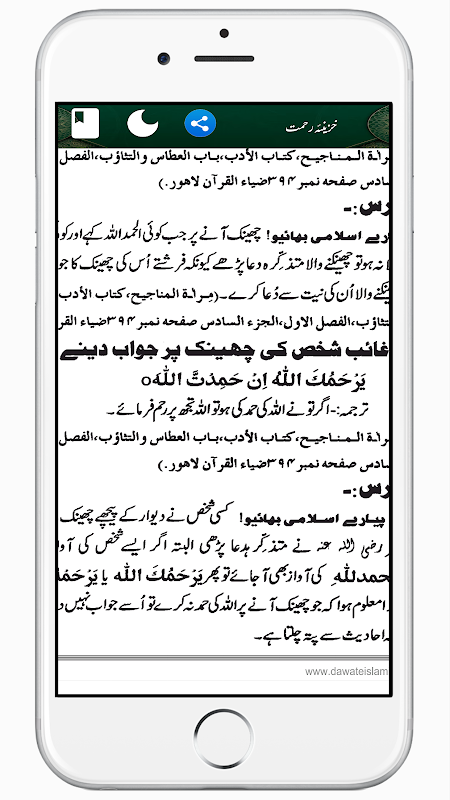 خزینۂ رحمت
مراٰۃ المناجیح، کتاب الأدب، باب العطاس والتثاؤب، الفصل
سادس صفحه نمبر ۳۹۴ ضیاء القرآن لاہور.)
درس:-
پیارے اسلامی بھائیو! چھینک آنے پر جب کوئی الحمد اللہ کہے اور کو
نہ ہو تو چھینکنے والا متذکّرہ دعا پڑھے کیونکہ فرشتے اُس کی چھینک کا جو
چھینکنے والا اُن کی نیت سے دُعا کرے۔ (مراٰۃ المناجیح، کتاب الأدب
التثاؤب، الفصل الاول، الجزء السادس صفحه نمبر ۳۹۴ ضیاء القر
غائب شخص کی چھینک پر جواب دینے
يَرْحَمُكَ اللّٰهُ اِنْ حَمِدْتَّ اللّٰهَo
ترجمہ:- اگر تو نے اللہ کی حمد کی ہو تو اللہ تجھ پر رحم فرمائے۔
مراٰۃ المناجیح، کتاب الأدب، باب العطاس والتثاؤب، الفصل
سادس صفحه نمبر ۳۹۴ ضیاء القرآن لاہور.)
درس:-
پیارے اسلامی بھائیو! کسی شخص نے دیوار کے پیچھے چھینک
رضی اللہ عنہ نے متذکّر ہدعا پڑھی البتہ اگر ایسے شخص کی آوا
حمدللّٰهِ کی آواز بھی آ جائے تو پھر يَرْحَمُكَ اللّٰه یا يَرْحَمُ
معلوم ہوا کہ جو چھینک آنے پر اللہ کی حمد نہ کرے تو اُسے جواب نہیں د
احادیث سے پتہ چلتا ہے۔
www.dawateislam